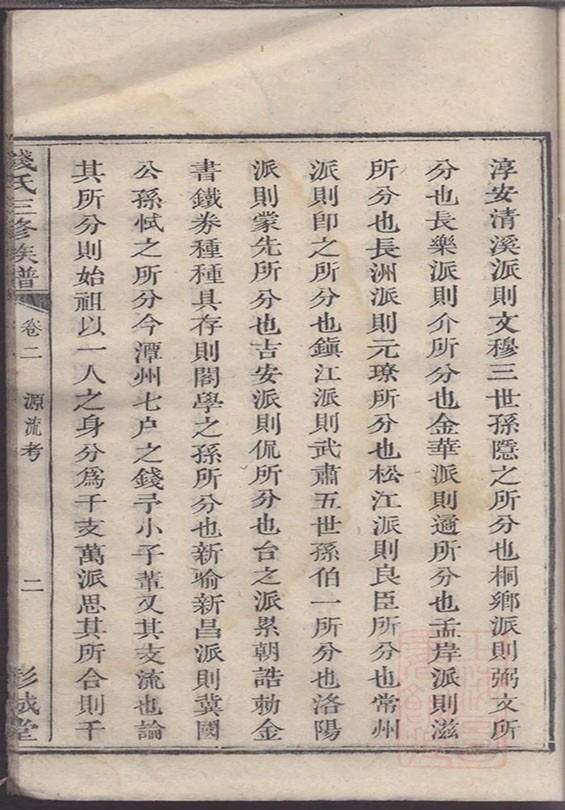 淳安清溪派則文穆三世孫隱之所分也桐鄉派則弼文所
分也長樂派則介所分也金華派則適所分也孟岸派則滋
所分也長洲派則元璙所分也松江派則良臣所分也常州
派則即之所分也鎭江派則武肅五世孫伯一所分也洛陽
派則蒙先所分也吉安派則侃所分也台之派累朝誥勅金
書鐵券種種具存則閣學之孫所分也新喻新昌派則冀國
公孫㦃之所分今潭州七户之錢予小子軰又其支流也論
其所分則始祖以一人之身分爲千支萬派思其所合則千
錢氏三修族譜
卷二
源流考
二
彭城堂